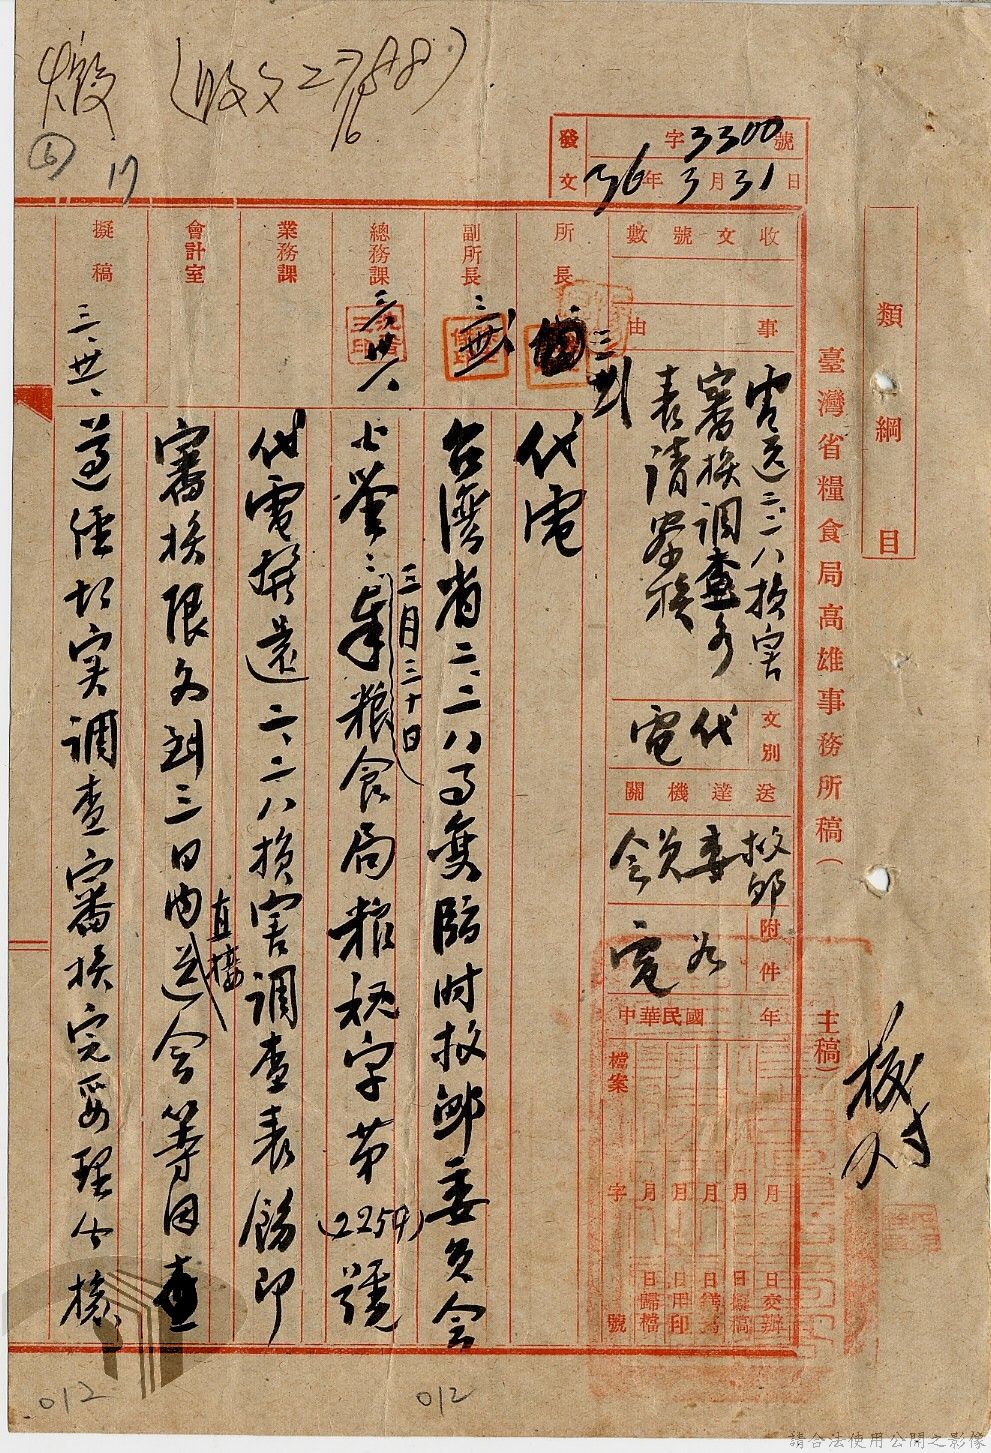 類綱目
臺灣省糧食局高雄事務所稿（主稿）
發文
字3300號
36年3月31日
收文號數
事由
電送二二八損害
審核調查
表請察核
文別
代電
送達機關
救邮
委員
會
附件
中華民國年
月日交辦
月日擬稿
月日繕寫
月日用印
月日歸檔
檔案字號
所長
副所長
總務課
業務課
會計室
擬稿
代電
台灣省二二八事變臨時救邮委員會
三月三十日
糧食局糧秘字第(2259)號
代電撰還二、二八損害調查表飭即
審核限文到三日內送會等因查
直接
遵經切實調查審核完妥理合檢
012
012
請合法使用公開之影像